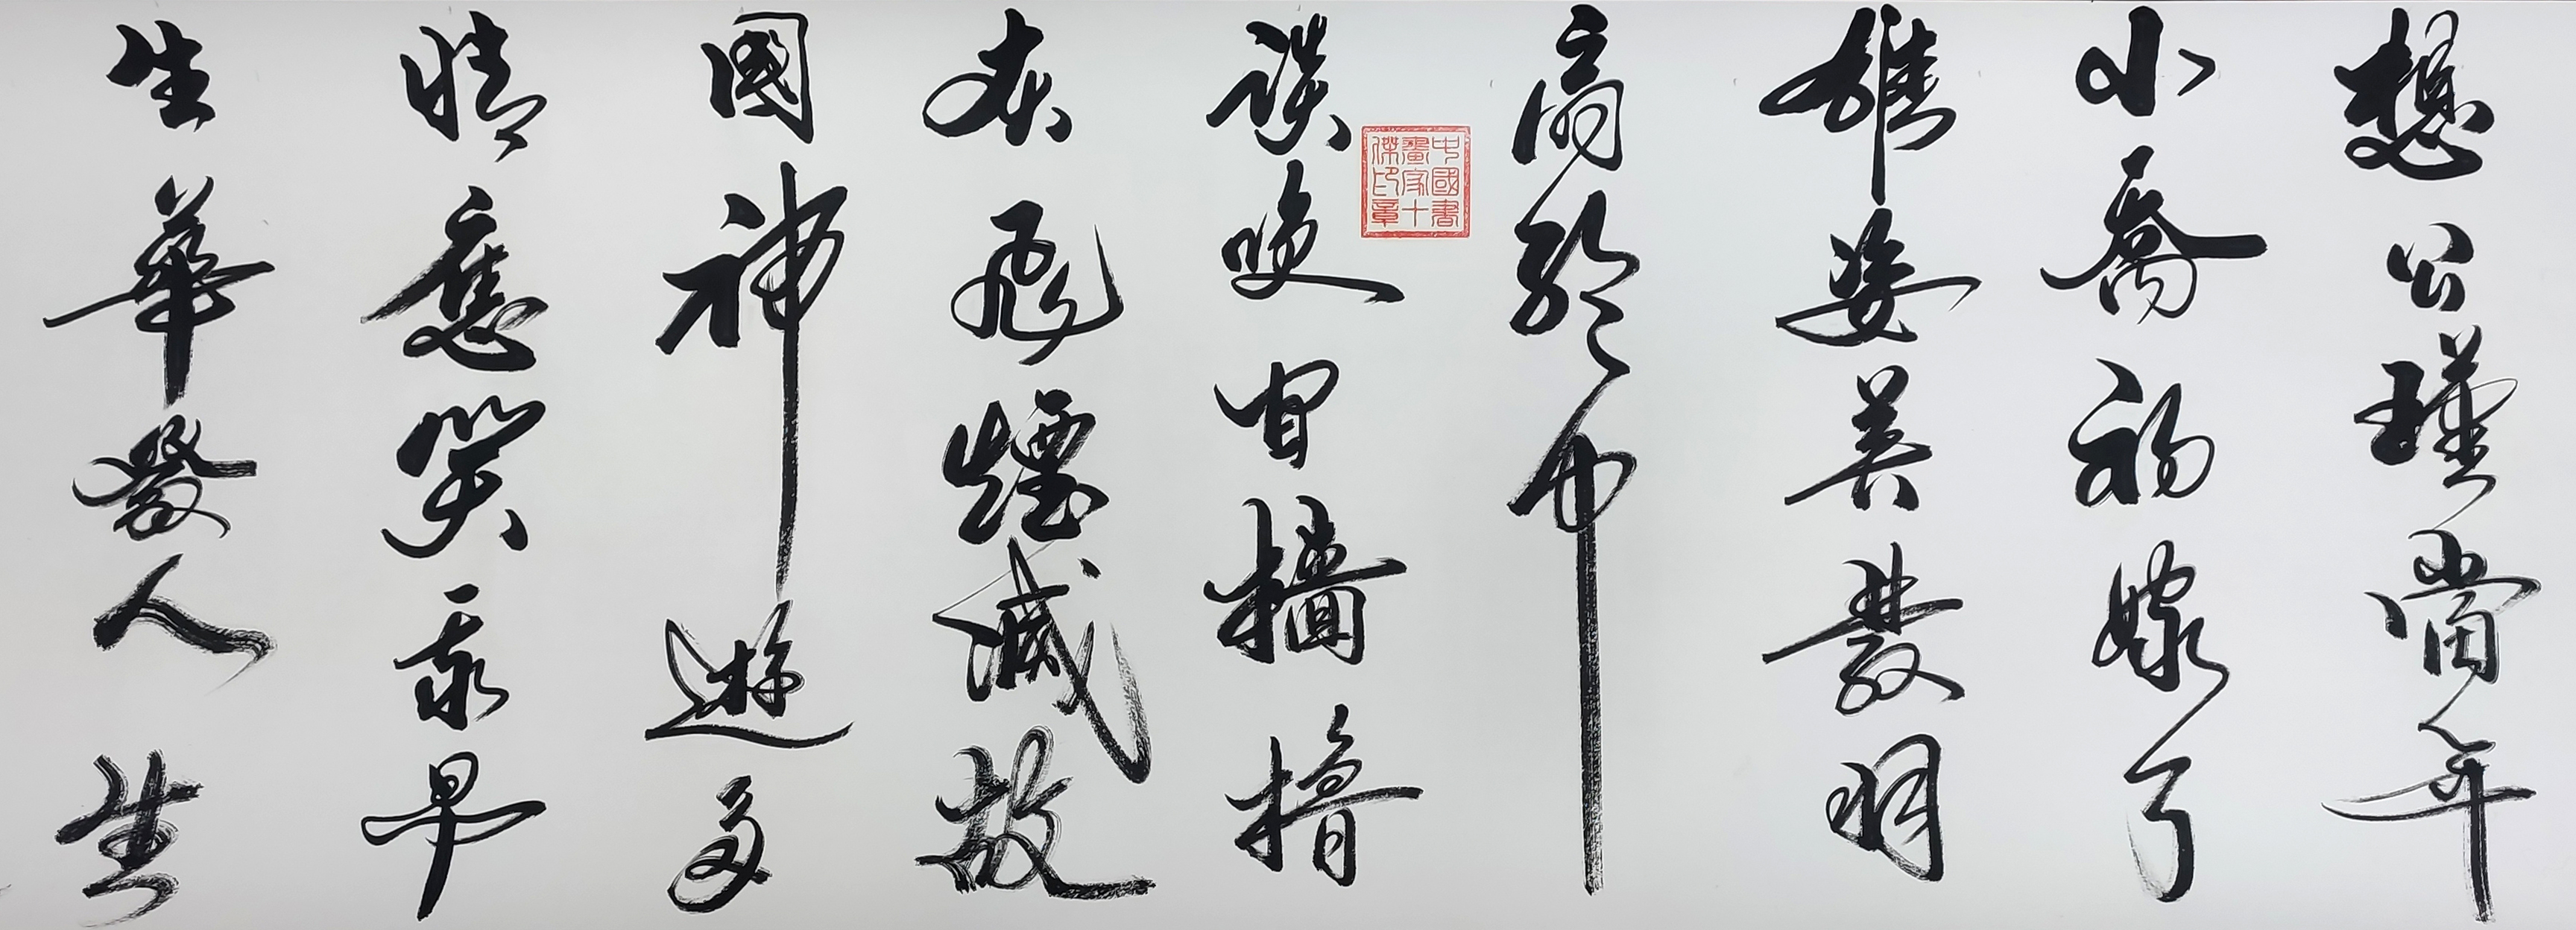 想公瑾當年
小喬初嫁了
雄姿英發羽
扇綸巾
談咲間檣櫓
灰飛煙滅故
國神遊多
情應笑我早
生華發人生
中國書
畫家十
傑印章